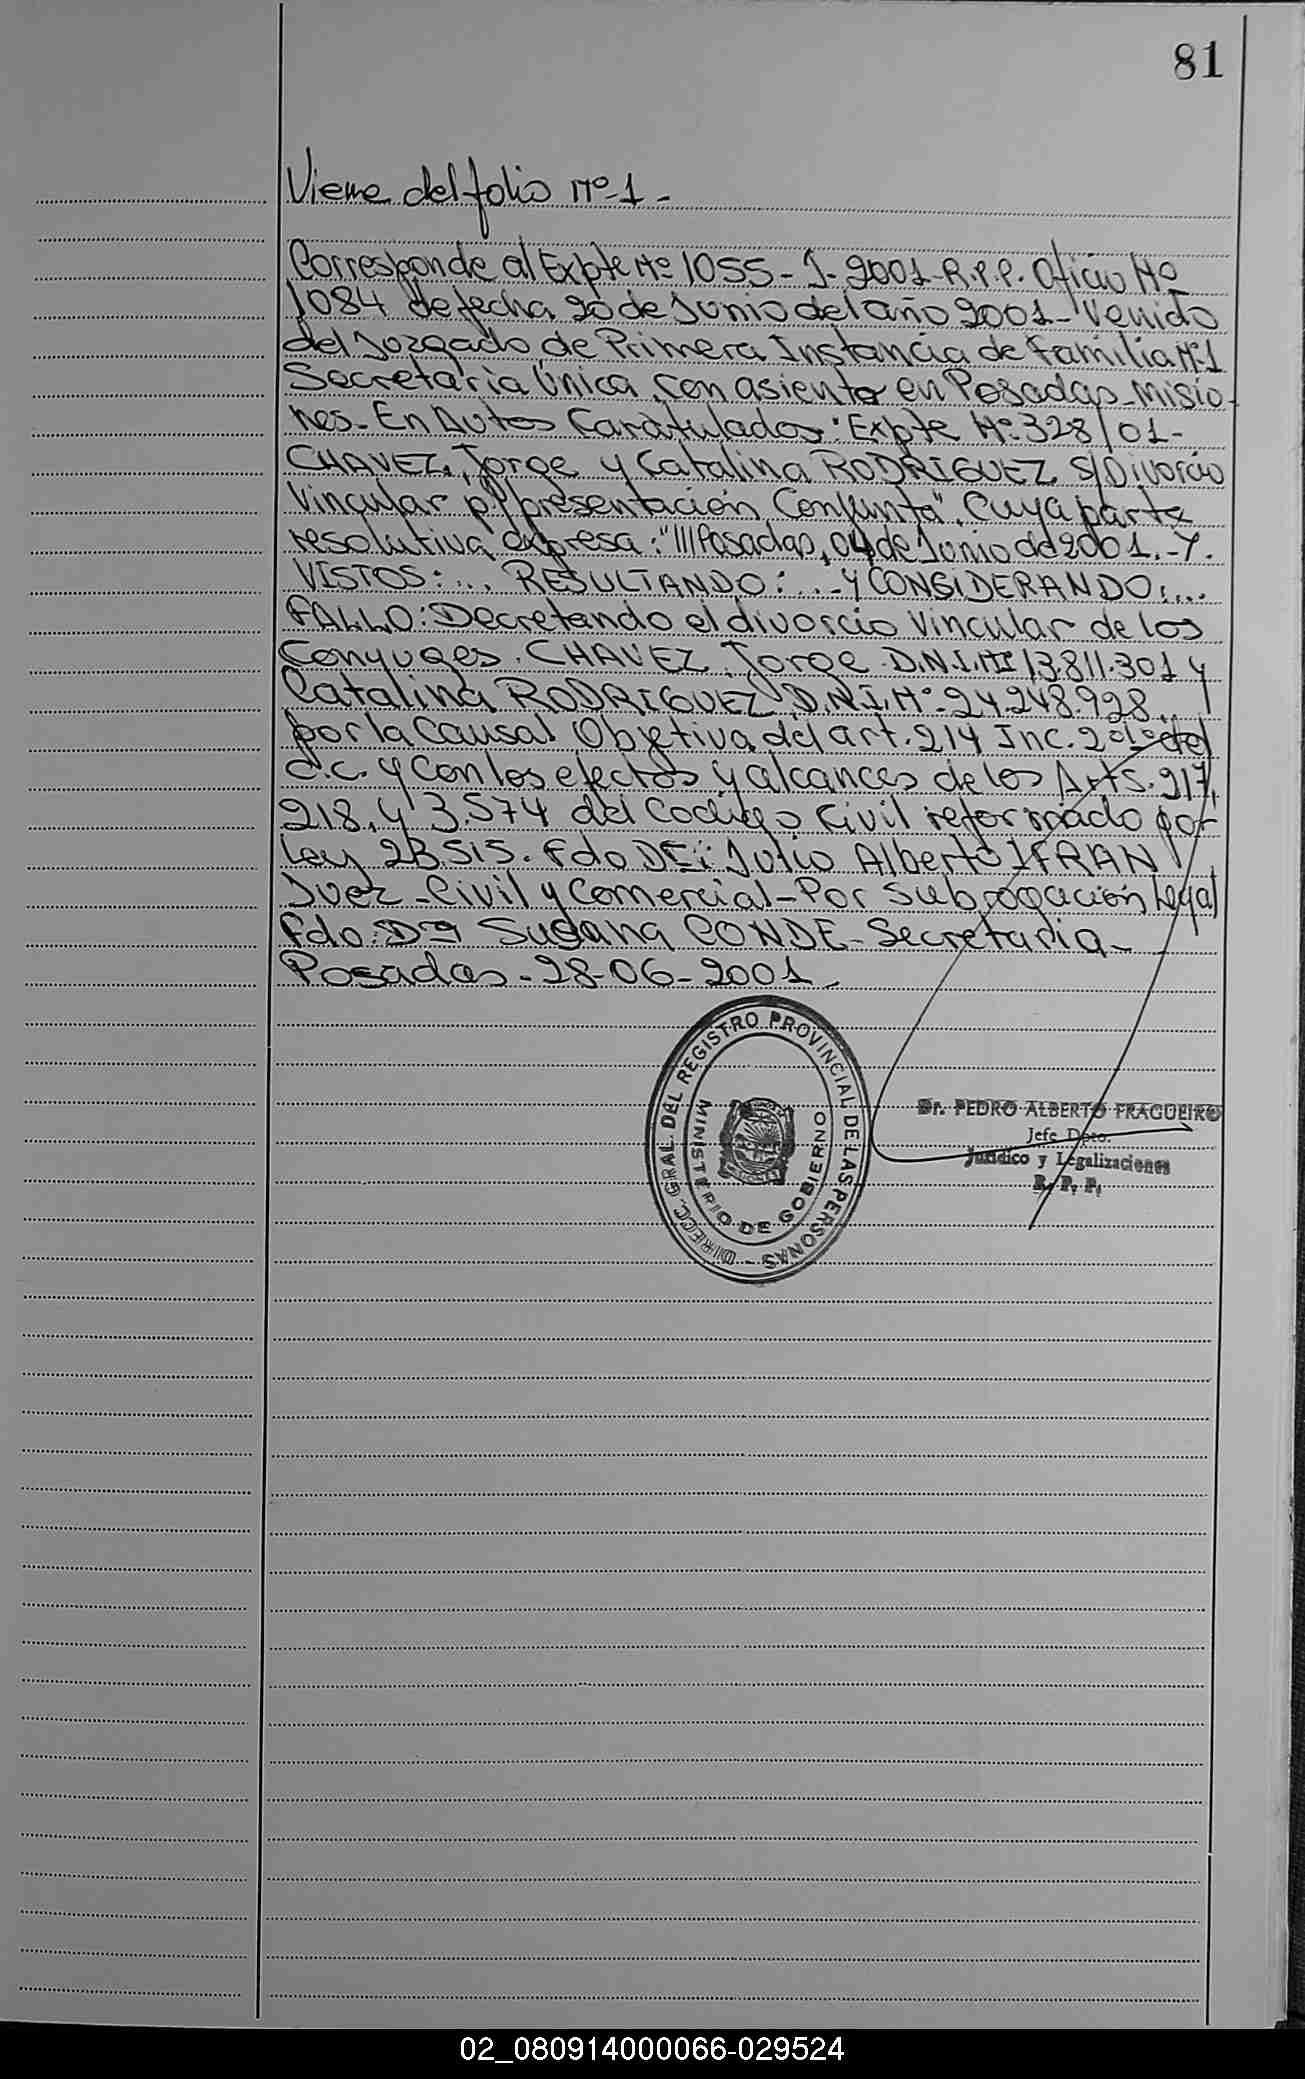 81
Viene del folio Nº-1-
Corresponde al Expte Nº 1055-J-2001-R.P.P. Oficio Nº
1084 de fecha 20 de Junio del año 2001- Venido
del Juzgado de Primera Instancia de Familia Nº1
Secretaria Única, con asiento en Posadas-Misio-
nes- En Autos Caratulados: "Expte Nº 328/01-
CHAVEZ, Jorge y Catalina RODRIGUEZ S/Divorcio
Vincular p/presentación Conjunta". Cuya parte
resolutiva expresa: "///Posadas, 04 de Junio de 2001.-Y.
VISTOS:... RESULTANDO:...Y CONSIDERANDO:...
FALLO: Decretando el divorcio Vincular de los
Conyuges. CHAVEZ, Jorge D.N.I. Nº 13.811.301 y
Catalina RODRIGUEZ D.N.I. Nº-24.248.928.
por la Causal Objetiva del art. 214 Inc. 2º del
C.C. y con los efectos y alcances de los Arts. 217,
218, y 3.574 del Codigo Civil reformado por
Ley 23.515. Fdo Julio Alberto IFRAN
Juez-Civil y Comercial-Por Subrogación Legal
Fdo: Dra Susana CONDE-Secretaria-
Posadas-28-06-2001-
DIRECC. GRAL. DEL REGISTRO PROVINCIAL DE LAS PERSONAS -
MINISTERIO DE GOBIERNO
Dr. PEDRO ALBERTO FRAGUEIRO
Jefe Dpto.
Jurídico y Legalizaciones
R. P. P.
02_080914000066-029524